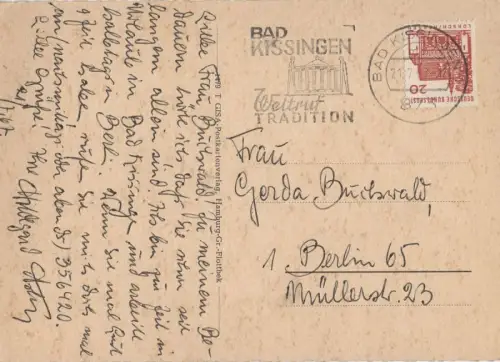 Liebe Frau Buchwald! Zu meinem Be-
dauern hörte ich, daß Sie schon seit
langem allein sind! Ich bin zur Zeit in
Urlaub in Bad Kissingen und arbeite
halbtags in Berl. Wenn Sie mal Lust
u Zeit haben rufen Sie mich doch mal
an, nachmittags oder abends / 356420.
Liebe Grüße! Ihre Hildegard
7/67
1479 T GISA-Postkartenverlag, Hamburg-Gr.-Flottbek
BAD
KISSINGEN
Weltruf
TRADITION
BAD KISSINGEN
DEUTSCHE BUNDESPOST
20
Frau
Gerda Buchwald,
1 Berlin 65
Müllerstr. 23